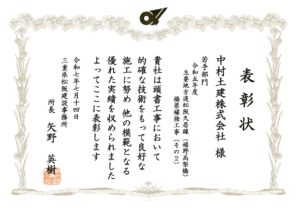 表彰状
中村土建株式会社 様
若手部門
令和五年度
主要地方道松阪久居線(嬉野高架橋)
橋梁補強工事(その2)
貴社は頭書工事において
的確な技術をもって良好な
施工に努め 他の模範となる
優れた実績を収められました
よってここに表彰します
令和七年七月十四日
三重県松阪建設事務所
所長 矢野 英樹